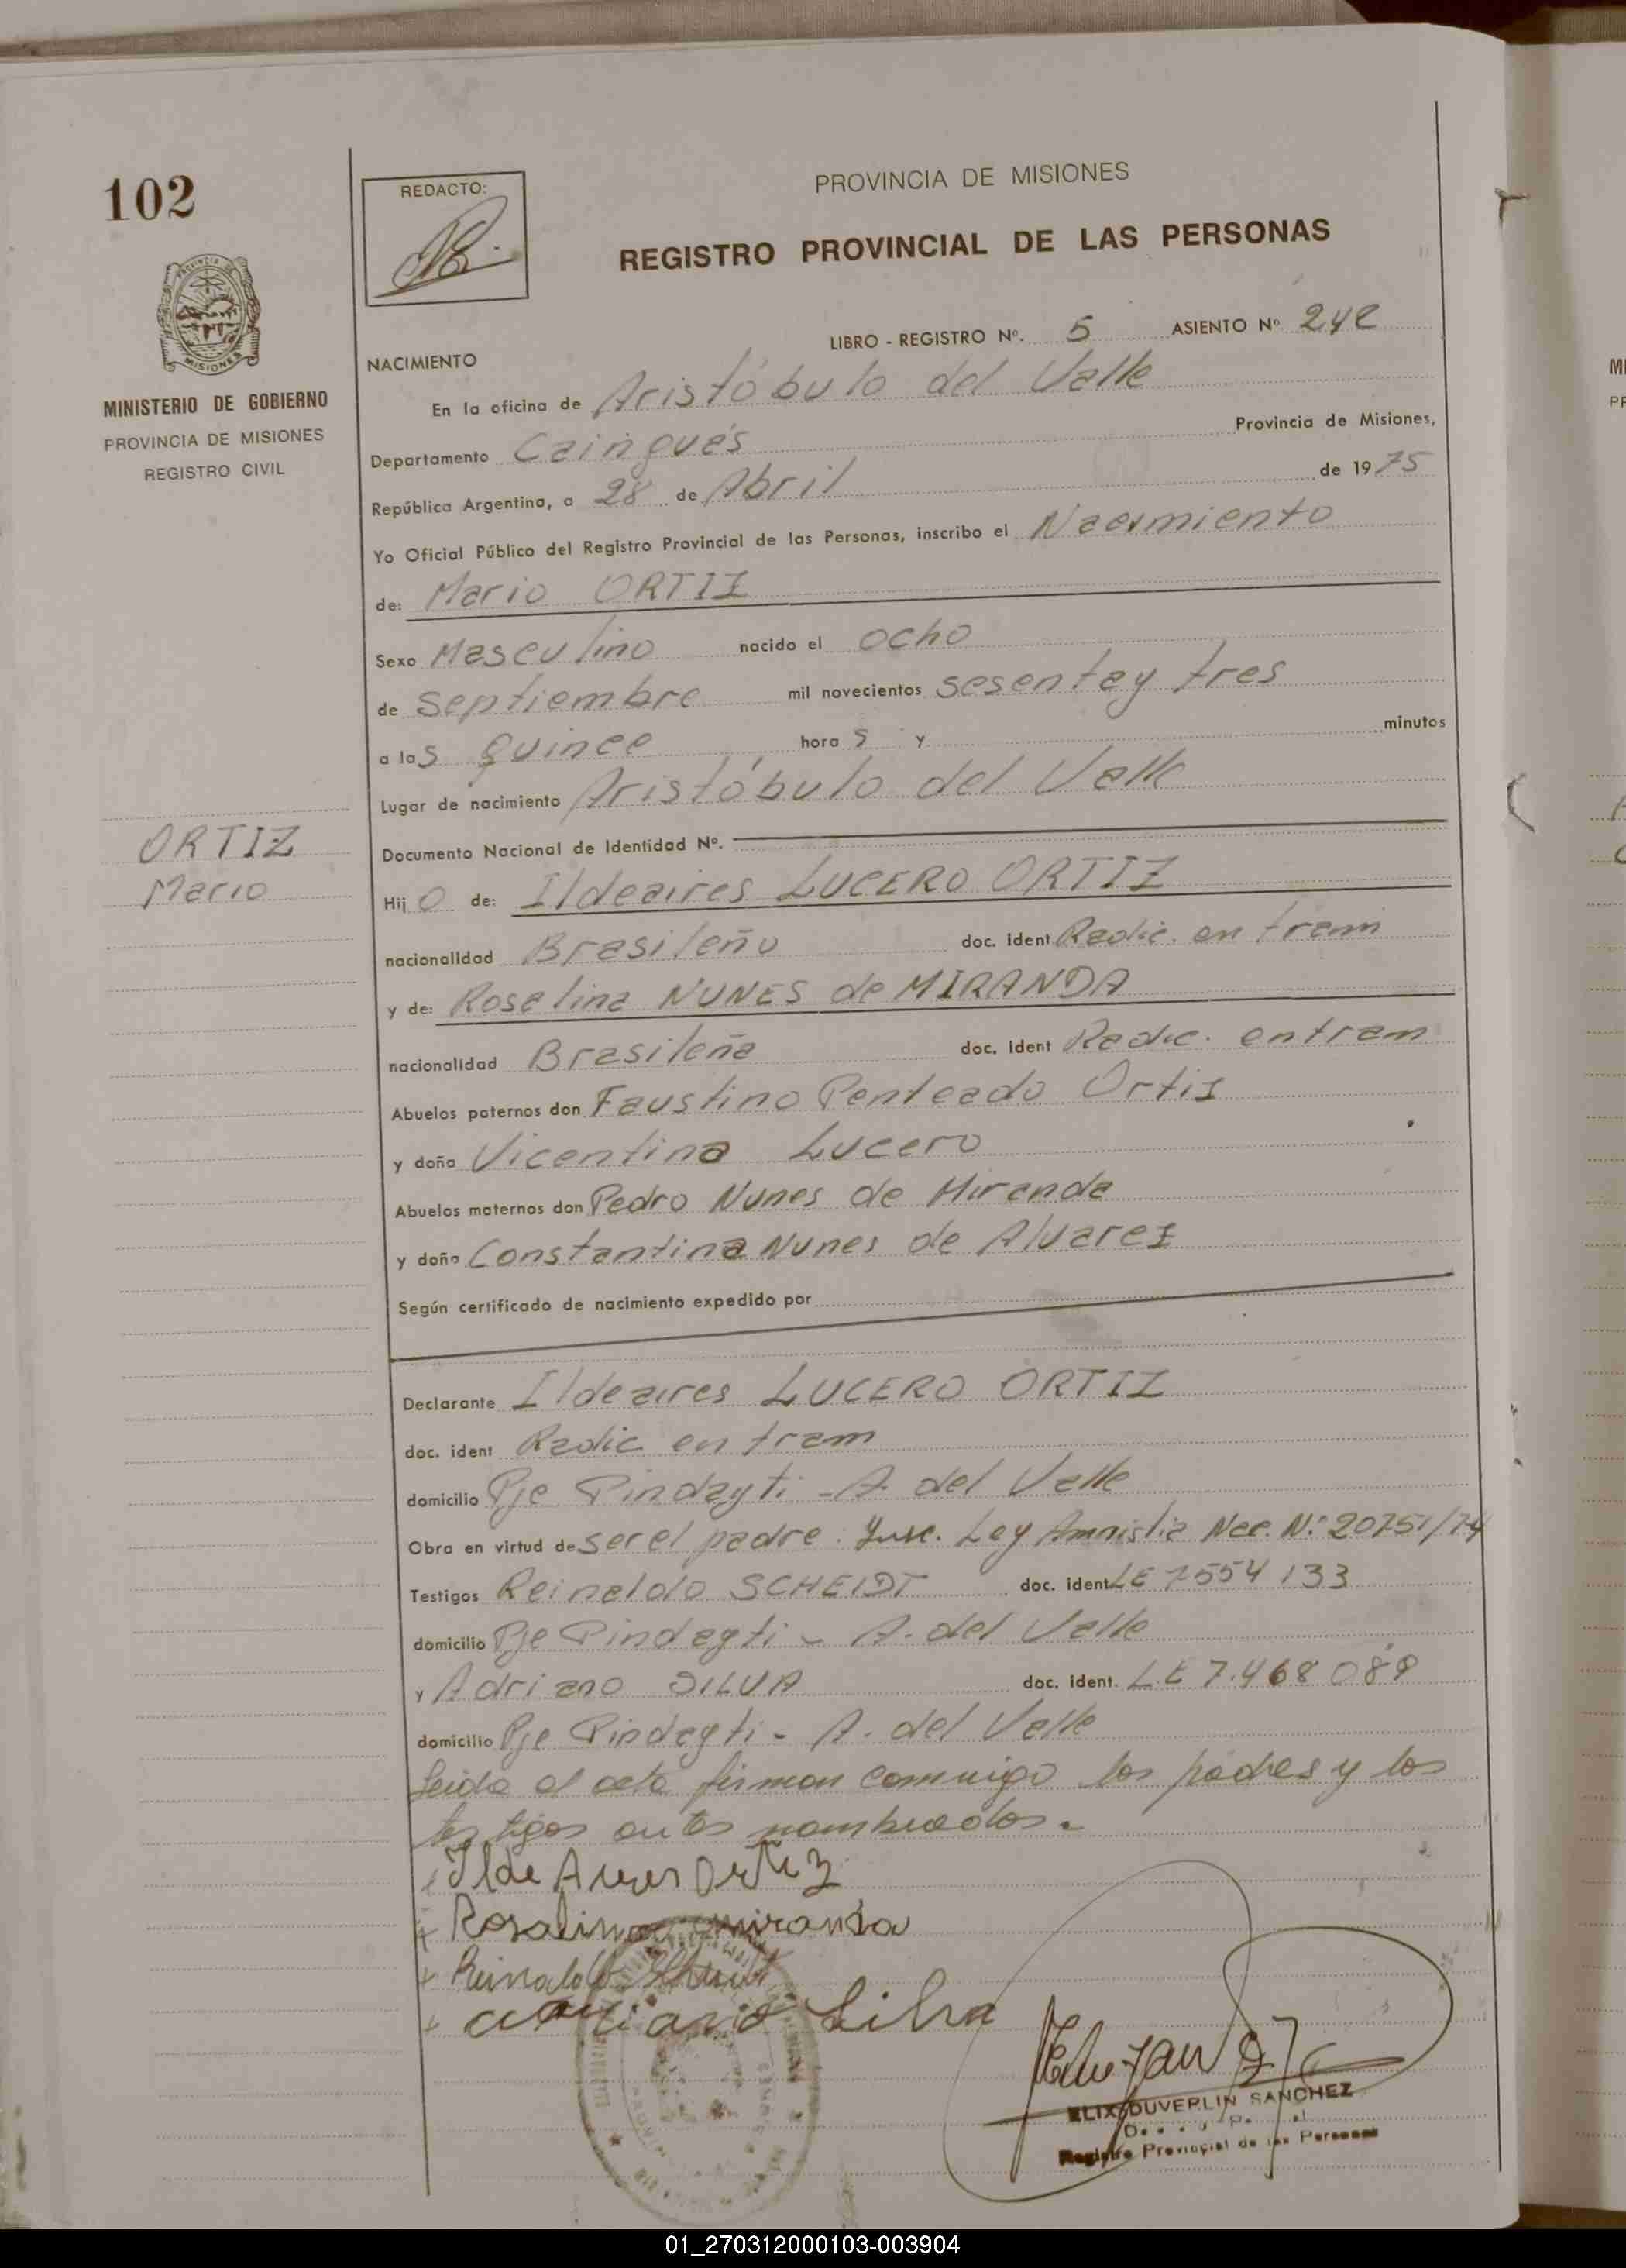 102
REDACTO:
PROVINCIA DE MISIONES
REGISTRO PROVINCIAL DE LAS PERSONAS
MISIONES
MINISTERIO DE GOBIERNO
PROVINCIA DE MISIONES
REGISTRO CIVIL
LIBRO - REGISTRO Nº. 5 ASIENTO Nº 242
NACIMIENTO
En la oficina de Aristóbulo del Valle
Departamento Caingués Provincia de Misiones,
República Argentina, a 28 de Abril de 1975
Yo Oficial Público del Registro Provincial de las Personas, inscribo el Nacimiento
de: Mario ORTIZ
Sexo Masculino nacido el ocho
de septiembre mil novecientos sesentay tres
a las quince horas y minutos
Lugar de nacimiento Aristóbulo del Valle
ORTIZ
Mario
Documento Nacional de Identidad Nº.
Hijo de: Ildeaires LUCERO ORTIZ
nacionalidad Brasileño doc. ident Radic. en tram
y de: Roselina NUNES de MIRANDA
nacionalidad Brasileña doc. ident Radic. entram
Abuelos paternos don Faustino Penteado Ortiz
y doña Vicentina Lucero
Abuelos maternos don Pedro Nunes de Miranda
y doña Constantina Nunes de Alvarez
Según certificado de nacimiento expedido por
Declarante Ildeaires LUCERO ORTIZ
doc. ident Radic en tram
domicilio Pje Pindayti - A. del Valle
Obra en virtud de ser el padre. Insc. Ley Amnistia Nac. N.º 20751/74
Testigos Reinaldo SCHEIDT doc. ident LE 7554133
domicilio Pje Pindayti - A. del Valle
y Adriano SILVA doc. ident. L.E 7.468 089
domicilio Pje Pindayti - A. del Valle
Leida el acta firman conmigo los padres y los
testigos antes nombrados.
Ilde Aires Ortiz
Rosalina miranda
Reinaldo
Silva
DUVERLIN SANCHEZ
Registro Provincial de las Personas
01_270312000103-003904